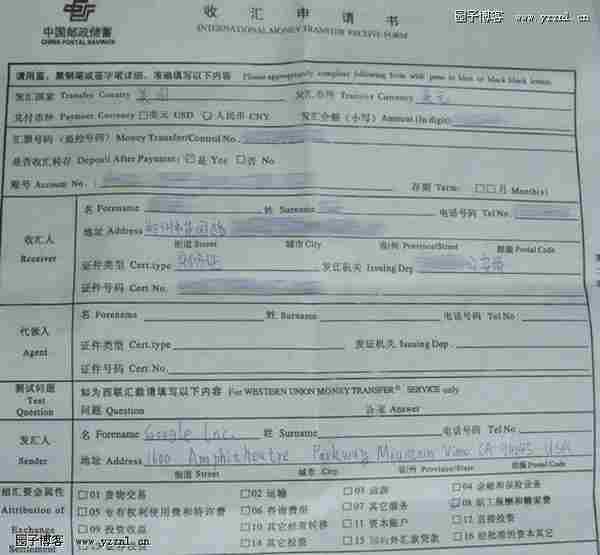 园子博客 www.yzznl.cn
中国邮政储蓄
CHINA POSTAL SAVINGS
收汇申请书
INTERNATIONAL MONEY TRANSFER RECEIVE FORM
请用蓝、黑钢笔或签字笔详细、准确填写以下内容 Please appropriately complete following form with pens in blue or black
发汇国家 Transfer Country 美国 发汇币种 Transfer Currency 美元
兑付币种 Payment Currency □美元 USD 人民币 CNY 发汇金额(小写) Amount (In digit)
汇票号码(监控号码) Money Transfer/Control No.
是否收汇转存 Deposit After Payment: 是 Yes □否 No
账号 Account No. 存期 Term: □□月 Month(s)
收汇人
Receiver
名 Forename 姓 Surname 电话号码 Tel No.
地址 Address
街道 Street 城市 City 省/州 Province/Street 邮编 Postal Code
证件类型 Cert.type 身份证 发证机关 Issuing Dep. 公安局
证件号码 Cert No.
代领人
Agent
名 Forename 姓 Surname 电话号码 Tel No
证件类型 Cert.type 发证机关 Issuing Dep.
证件号码 Cert.No.
测试问题
Test
Question
如为西联汇款请填写以下内容 For WESTERN UNION MONEY TRANSFER® SERVICE only
问题 Question 答案 Answer
发汇人
Sender
名 Forename Google Inc. 姓 Surname 电话号码 Tel No
地址 Address 1600 Amphitheatre Parkway Mountain View CA USA
街道 Street 城市 City 省/州 Province/State 邮编 Postal Code
结汇资金属性
Attribution of
Exchange
Settlement
□01 货物贸易 □02 运输 □03 旅游 □04 金融和保险服务
□05 专有权利使用费和特许费 □06 咨询费用 □07 其它服务 08 职工报酬和赡家费
□09 投资收益 □10 其它经常转移 □11 资本账户 □12 直接投资
证券投资 □14 其它投资 □15 国内外汇贷款 □16 经批准的资本其它
园子博客 www.yzznl.cn